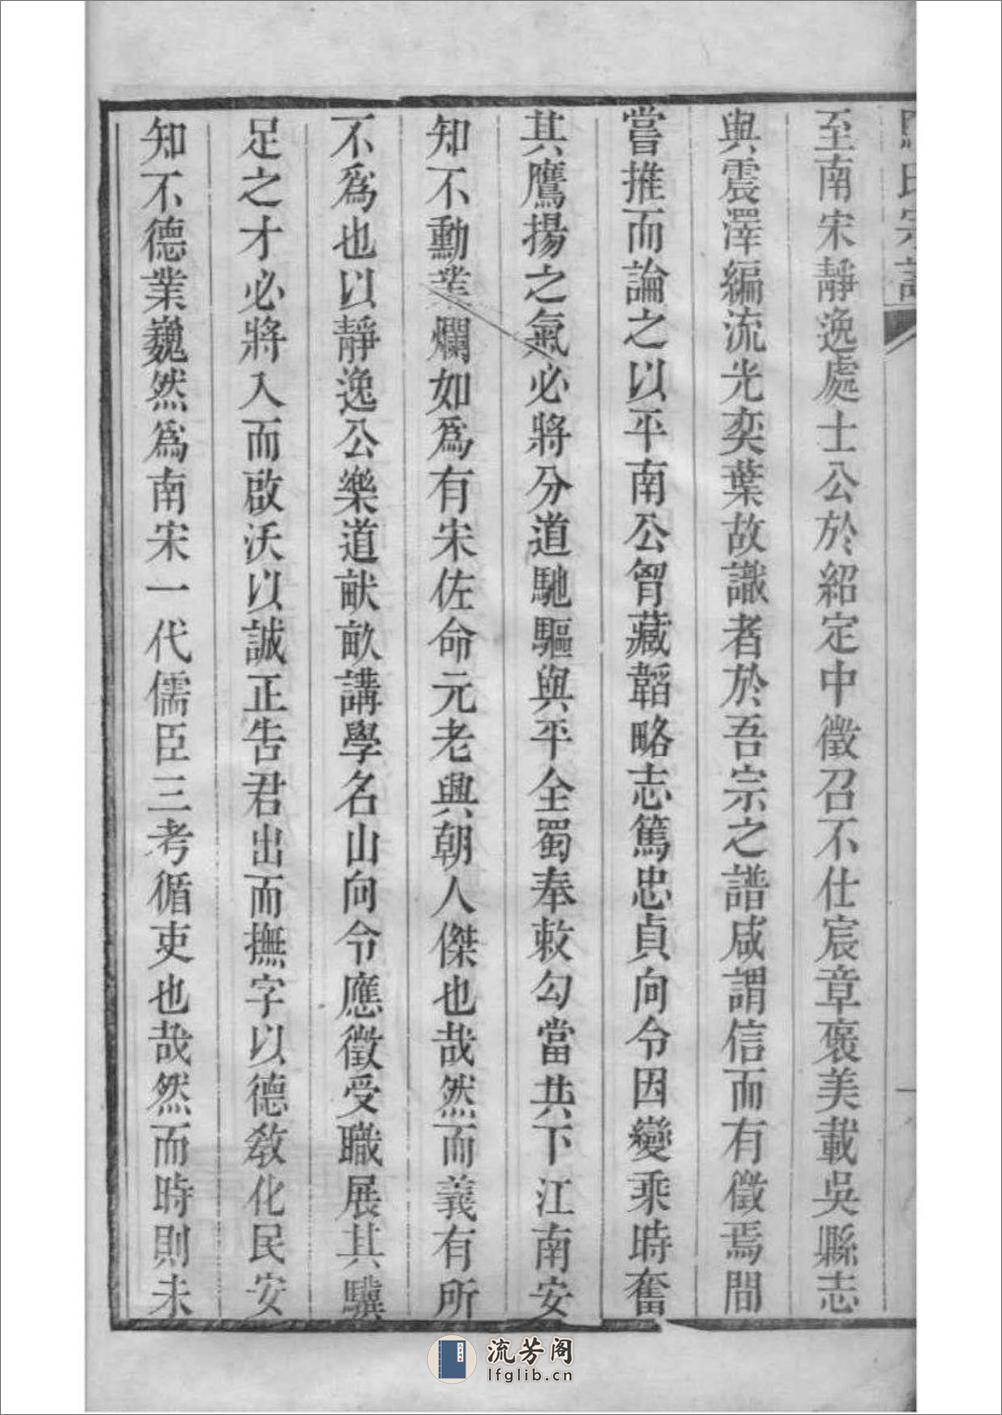 氏宗譜
至南宋靜逸處士公於紹定中徵召不仕宸章褒美載吳縣志
與震澤編流光奕葉故識者於吾宗之譜咸謂信而有徵焉間
嘗推而論之以平南公胷藏韜略志篤忠貞向令因變乘時奮
其鷹揚之氣必將分道馳驅與平全蜀奉敕勾當共下江南安
知不勳業爛如爲有宋佐命元老興朝人傑也哉然而義有所
不爲也以靜逸公樂道畎畝講學名山向令應徵受職展其驥
足之才必將入而啟沃以誠正告君出而撫字以德敎化民安
知不德業巍然爲南宋一代儒臣三考循吏也哉然而時則未
流芳阁
lfglib.cn